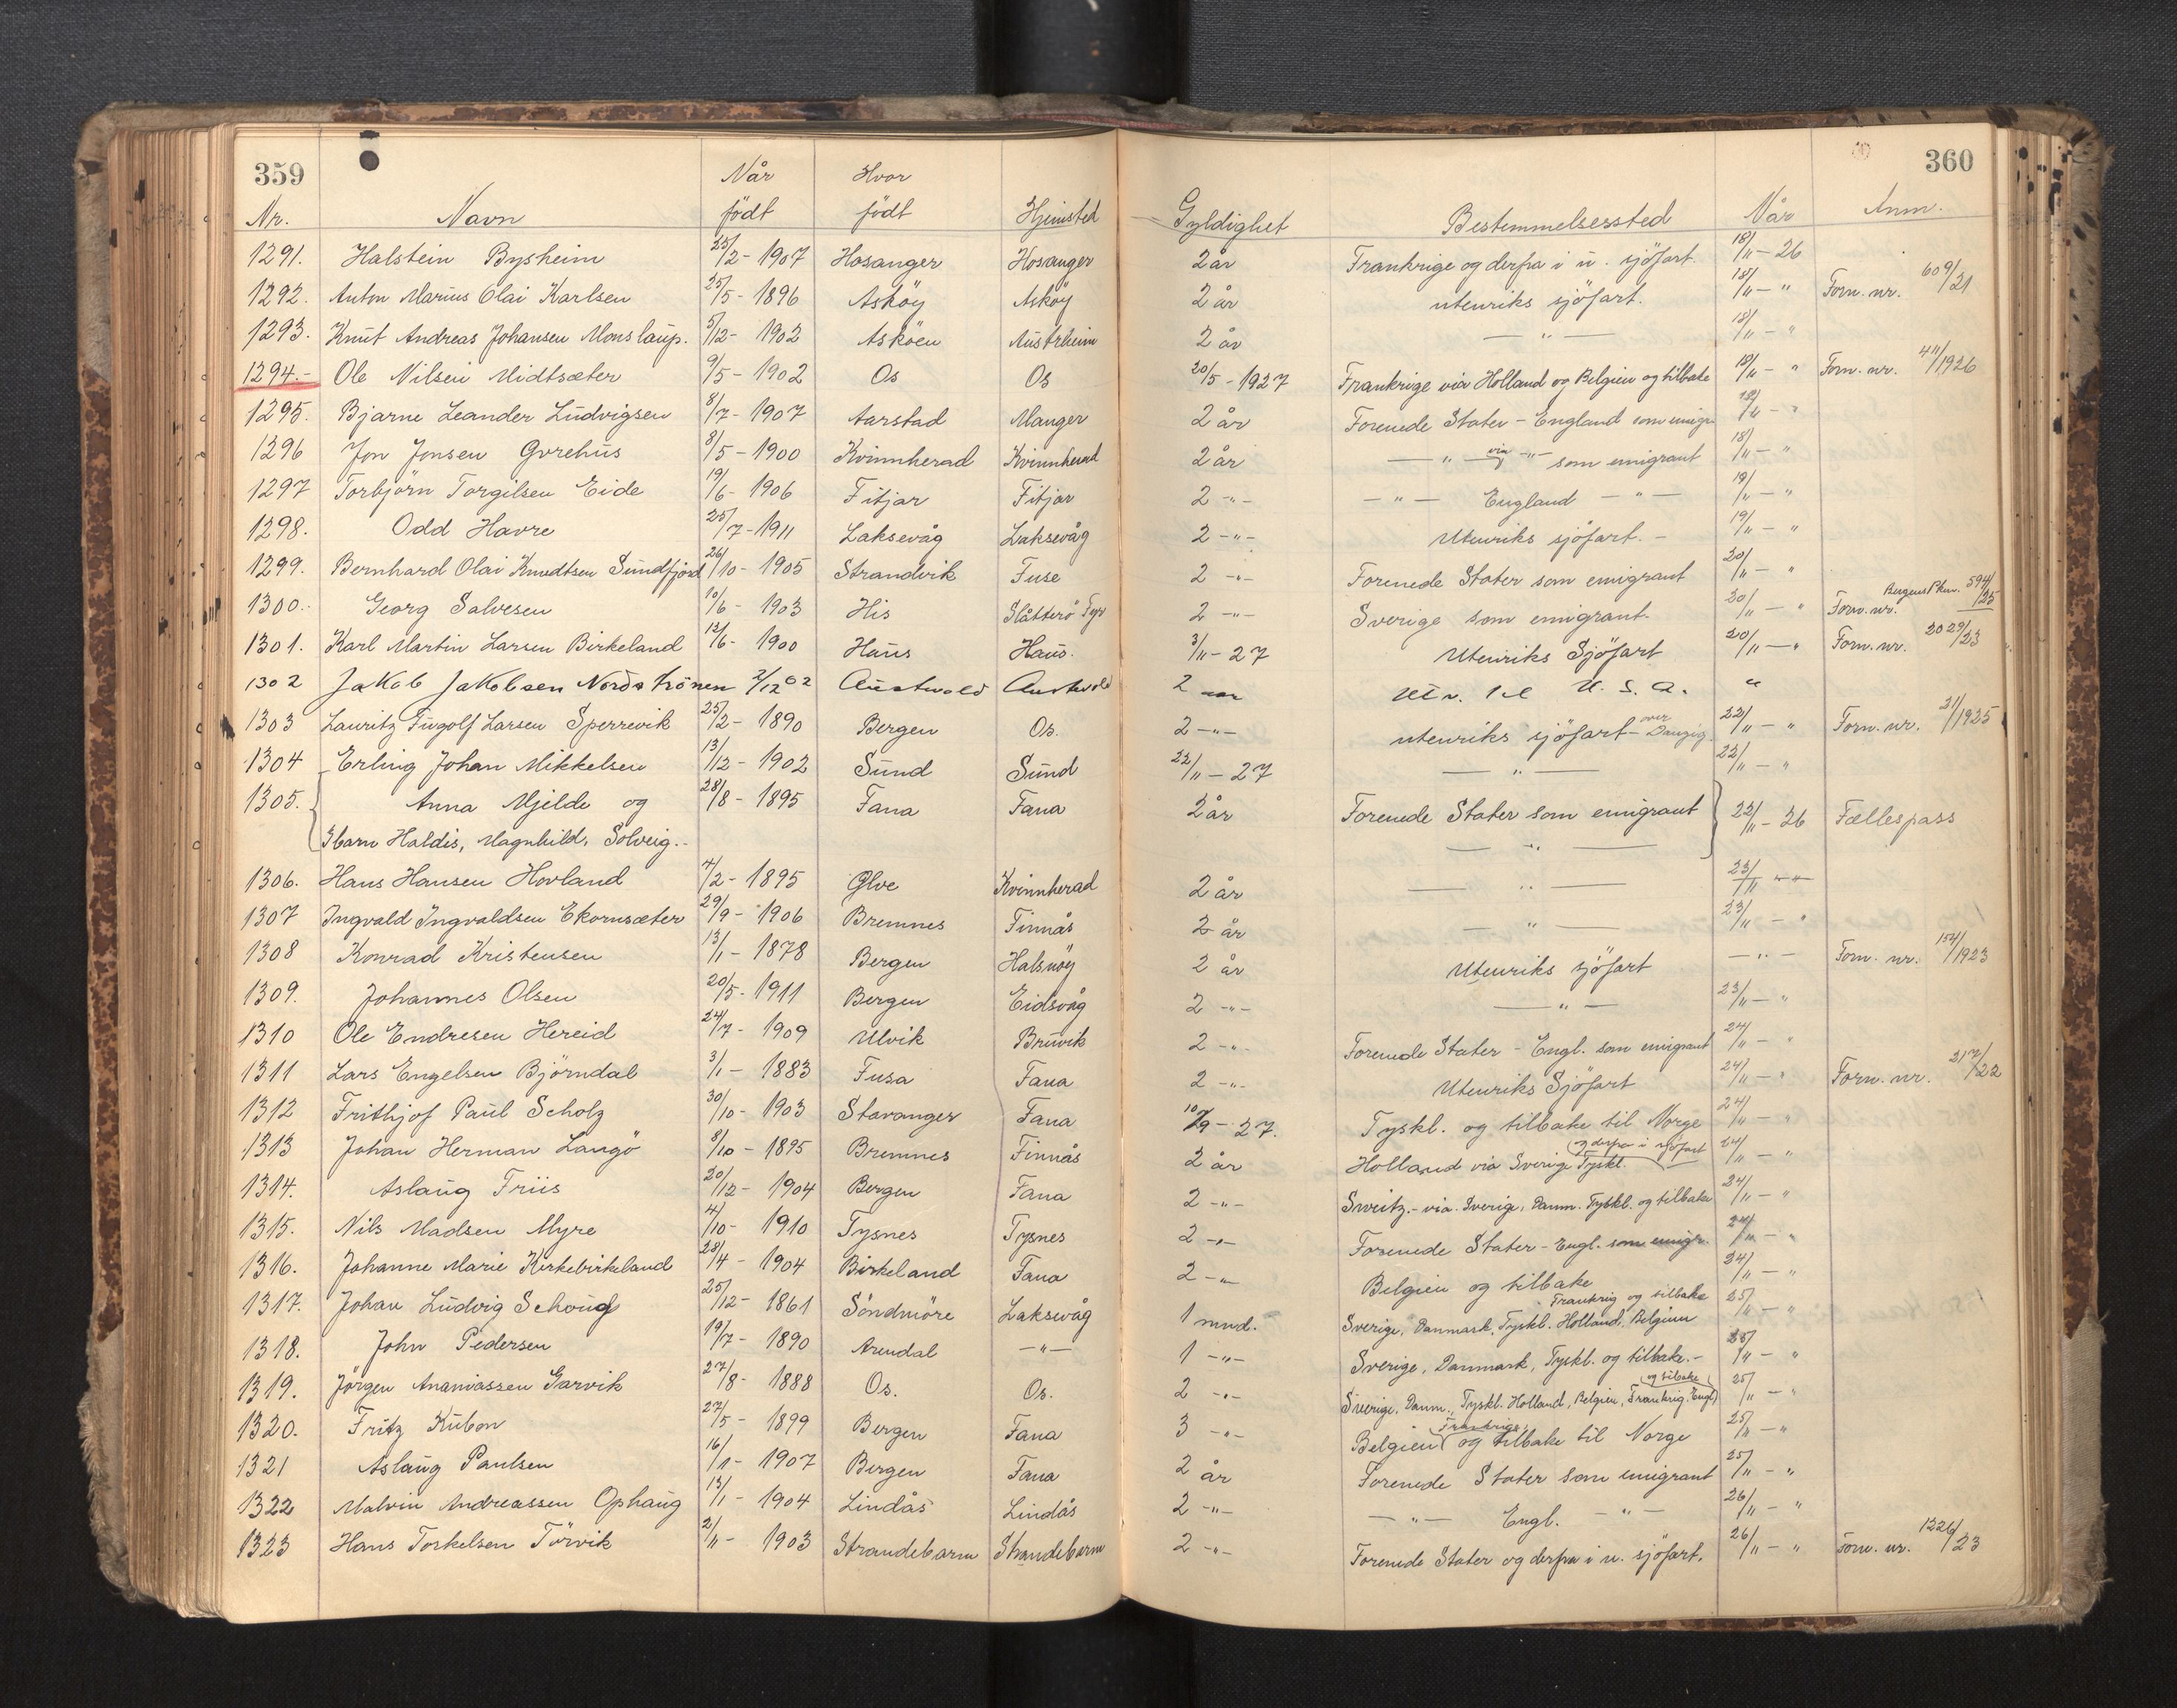 359 360
Nr. Navn Når födt Hvor födt Hjemsted Gyldighet Bestemmelsessted Når Anm.
1291. Halstein Bysheim 25/2 - 1907 Hosanger Hosanger 2 år Frankrige og derfra i u. sjöfart. 18/11 - 26
1292. Anton Marius Olai Karlsen 25/5 - 1896 Asköy Asköy 2 år utenriks sjöfart. 18/11 - " Forn. nr. 609/21
1293. Knut Andreas Johansen Monslaup. 5/12 - 1902 Asköen Austrheim 2 år — " — 18/11 - "
1294. - Ole Nilsen Midtsæter 9/5 - 1902 Os Os 20/5 - 1927 Frankrige via Holland og Belgien og tilbake 19/11 - " Forn. nr. 411/1926
1295. Bjarne Leander Ludvigsen 8/7 - 1907 Aarstad Manger 2 år Forenede Stater - England som emigr. /11 - "
1296 Jon Jonsen Gvrehus 8/5 - 1900 Kvinnherad Kvinnherad 2 år — " — via - " - som emigrant 18/11 - "
1297 Torbjörn Torgilsen Eide 19/6 - 1906 Fitjar Fitjar 2 - " - — " — England — " — 19/11 - "
1298. Odd Havre 25/7 - 1911 Laksevåg Laksevåg 2 - " - Utenriks sjöfart. - 19/11 - "
1299. Bernhard Olai Knudtsen Sundfjord 26/10 - 1905 Strandvik Fuse 2 - " - Forenede Stater som emigrant 20/11 - "
1300. Georg Salvesen 10/6 - 1903 His Slåtterö Fyr 2 - " - Sverige som emigrant. 20/11 - " Forn. nr. Bergens Pkm. 594/25
1301. Karl Martin Larsen Birkeland 12/6 - 1900 Haus Haus. 3/11 - 27 Utenriks Sjöfart 20/11 - " Forn. nr. 2029/23
1302 Jakob Jakobsen Nordströnen 2/12 02 Austevold Austevold 2 U.S.A. "
1303 Lauritz Ingolf Larsen Sperrevik 25/2 - 1890 Bergen Os. 2 - " - utenriks sjöfart - over Danzig. 22/11 - " Forn. nr. 31/1925
1304 Erling Johan Mikkelsen 13/12 - 1902 Sund Sund 22/11 - 27 — " — 22/11 - "
1305. Anna Mjelde og 28/8 - 1895 Fana Fana 2 år Forenede Stater som emigrant 22/11 - 26 Fællespass
3 barn Haldis, Magnhild, Solveig. - — " —
1306. Hans Hansen Hovland 4/2 - 1895 Ølve Kvinnherad 2 år — " — 23/11 - " -
1307 Ingvald Ingvaldsen Ekornsæter 29/9 - 1906 Bremnes Finnås 2 år — " — 23/11 - "
1308 Konrad Kristensen 13/1 - 1878 Bergen Halsnöy 2 år Utenriks sjöfart — " — Forn. nr. 154/1923
1309. Johannes Olsen 20/5 - 1911 Bergen Eidsvåg 2 - " - — " — 23/11 - "
1310 Ole Endresen Hereid 24/7 - 1909 Ulvik Bruvik 2 - " - Forenede Stater - Engl. som emigrant 24/11 - "
1311 Lars Engelsen Björndal 3/1 - 1883 Fusa Fana 2 - " - Utenriks Sjöfart 24/11 - " Forn. nr. 217/22
1312 Frithjof Paul Scholz 30/10 - 1903 Stavanger Fana 10/9 - 27. Tyskl. og tilbake til Norge 24/11 - "
1313 Johan Herman Langö 8/10 - 1895 Bremnes Finnås 2 år Holland via Sverige Tyskl. og derfra i sjöfart 24/11 - "
1314. Aslaug Friis 20/12 - 1904 Bergen Fana 2 - " - Sweitz. - via. Sverige, Danm. Tyskl. og tilbake 24/11 - "
1315. Nils Madsen Myre 4/10 - 1910 Tysnes Tysnes 2 - " - Forenede Stater - Engl. som emigr. 24/11 - "
1316. Johanne Marie Kirkebirkeland 28/4 - 1904 Birkeland Fana 2 - " - Belgien og tilbake 24/11 - "
1317. Johan Ludvig Schoug 25/12 - 1861 Söndmöre Laksevåg 1 mnd. Sverige, Danmark, Tyskl. Holland, Belgien Frankrig og tilbake 25/11 - "
1318. John Pedersen 19/7 - 1890 Arendal — " — 1 - " - Sverige, Danmark, Tyskl. og tilbake. - 25/11 - "
1319. Jörgen Ananiassen Garvik 27/8 - 1888 Os. Os. 2 - " - Sverige, Danm., Tyskl. Holland, Belgien, Frankrig. Engl. og tilbake 25/11 - "
1320. Fritz Kubon 27/5 - 1899 Bergen Fana 3 - " - Belgien Frankrige og tilbake til Norge 25/11 - "
1321 Aslaug Paulsen 16/1 - 1907 Bergen Fana 2 år Forenede Stater som emigrant 25/11 - "
1322 Malvin Andreassen Ophaug 13/1 - 1904 Lindås Lindås 2 - " - — " — Engl. — " — 26/11 - "
1323 Hans Torkelsen Törvik 2/11 - 1903 Strandebarm Strandebarm 2 - " - Forenede Stater og derfra i u. sjöfart. 26/11 - " Forn. nr. 1226/23